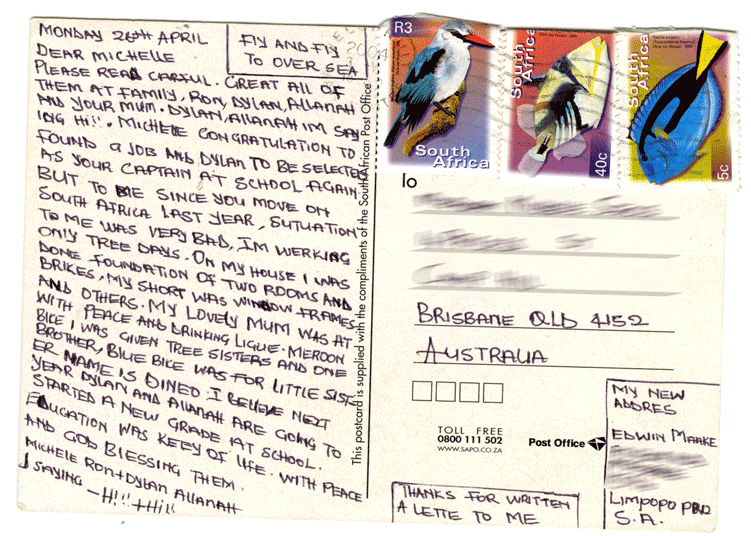 MONDAY 26TH APRIL
FLY AND FLY
TO OVER SEA
DEAR MICHELLE
PLEASE READ CARFUL. GREAT ALL OF
THEM AT FAMILY. RON, DYLAN, ALLANAH
AND YOUR MUM. DYLAN, ALLANAH IM SAY
ING HI!!. MICHELE CONGRATULATION TO
FOUND A JOB AND DYLAN TO BE SELECTED
AS YOUR CAPTAIN AT SCHOOL AGAIN.
BUT TO ME SINCE YOU MOVE ON
SOUTH AFRICA LAST YEAR, SUTUATION
TO ME WAS VERY BAD, IM WERKING
ONLY TREE DAYS. ON MY HOUSE I WAS
DONE FOUNDATION OF TWO ROOMS AND
BRIKES, MY SHORT WAS WINDOW FRAMES
AND OTHERS. MY LOVELY MUM WAS AT
WITH PEACE AND DRINKING LIQUE. MEROON
BIKE I WAS GIVEN TREE SISTERS AND ONE
BROTHER, BLUE BIKE WAS FOR LITTLE SISTE
ER NAME IS DINEO I BELIEVE NEXT
YEAR DYLAN AND ALLANAH ARE GOING TO
STARTED A NEW GRADE AT SCHOOL.
EDUCATION WAS KEEY OF LIFE. WITH PEACE
AND GOD BLESSING THEM.
MICHELE RON+DYLAN ALLANAH
I SAYING - HI!!! + HI!!
This postcard is supplied with the compliments of the South African Post Office
R3
South
Africa
South
Africa
40c
South
Africa
5c
To
BRISBANE QLD 4152
AUSTRALIA
TOLL FREE
0800 111 502
WWW.SAPO.CO.ZA
Post Office
MY NEW
ADDRES
EDWIN MAAKE
LIMPOPO PRO
S.A.
THANKS FOR WRITTEN
A LETTE TO ME